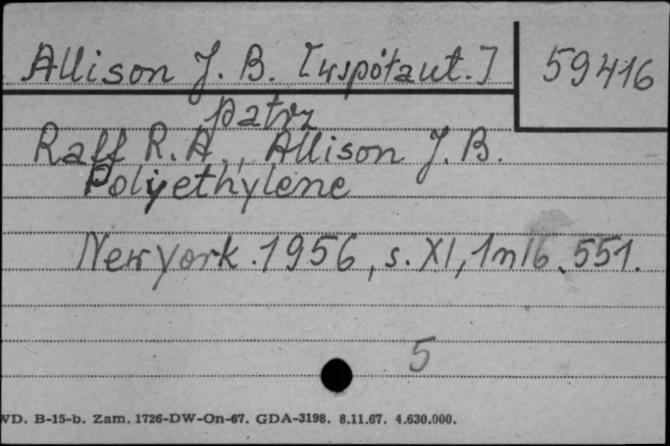 Allison J. B. [współaut.] 59416
patrz
Raff R.A., Allison J. B.
Polyethylene
New York. 1956, s. XI, 1nlb, 551.
5
WD. B-15-b. Zam. 1726-DW-On-67. GDA-3198. 8.11.67. 4.630.000.